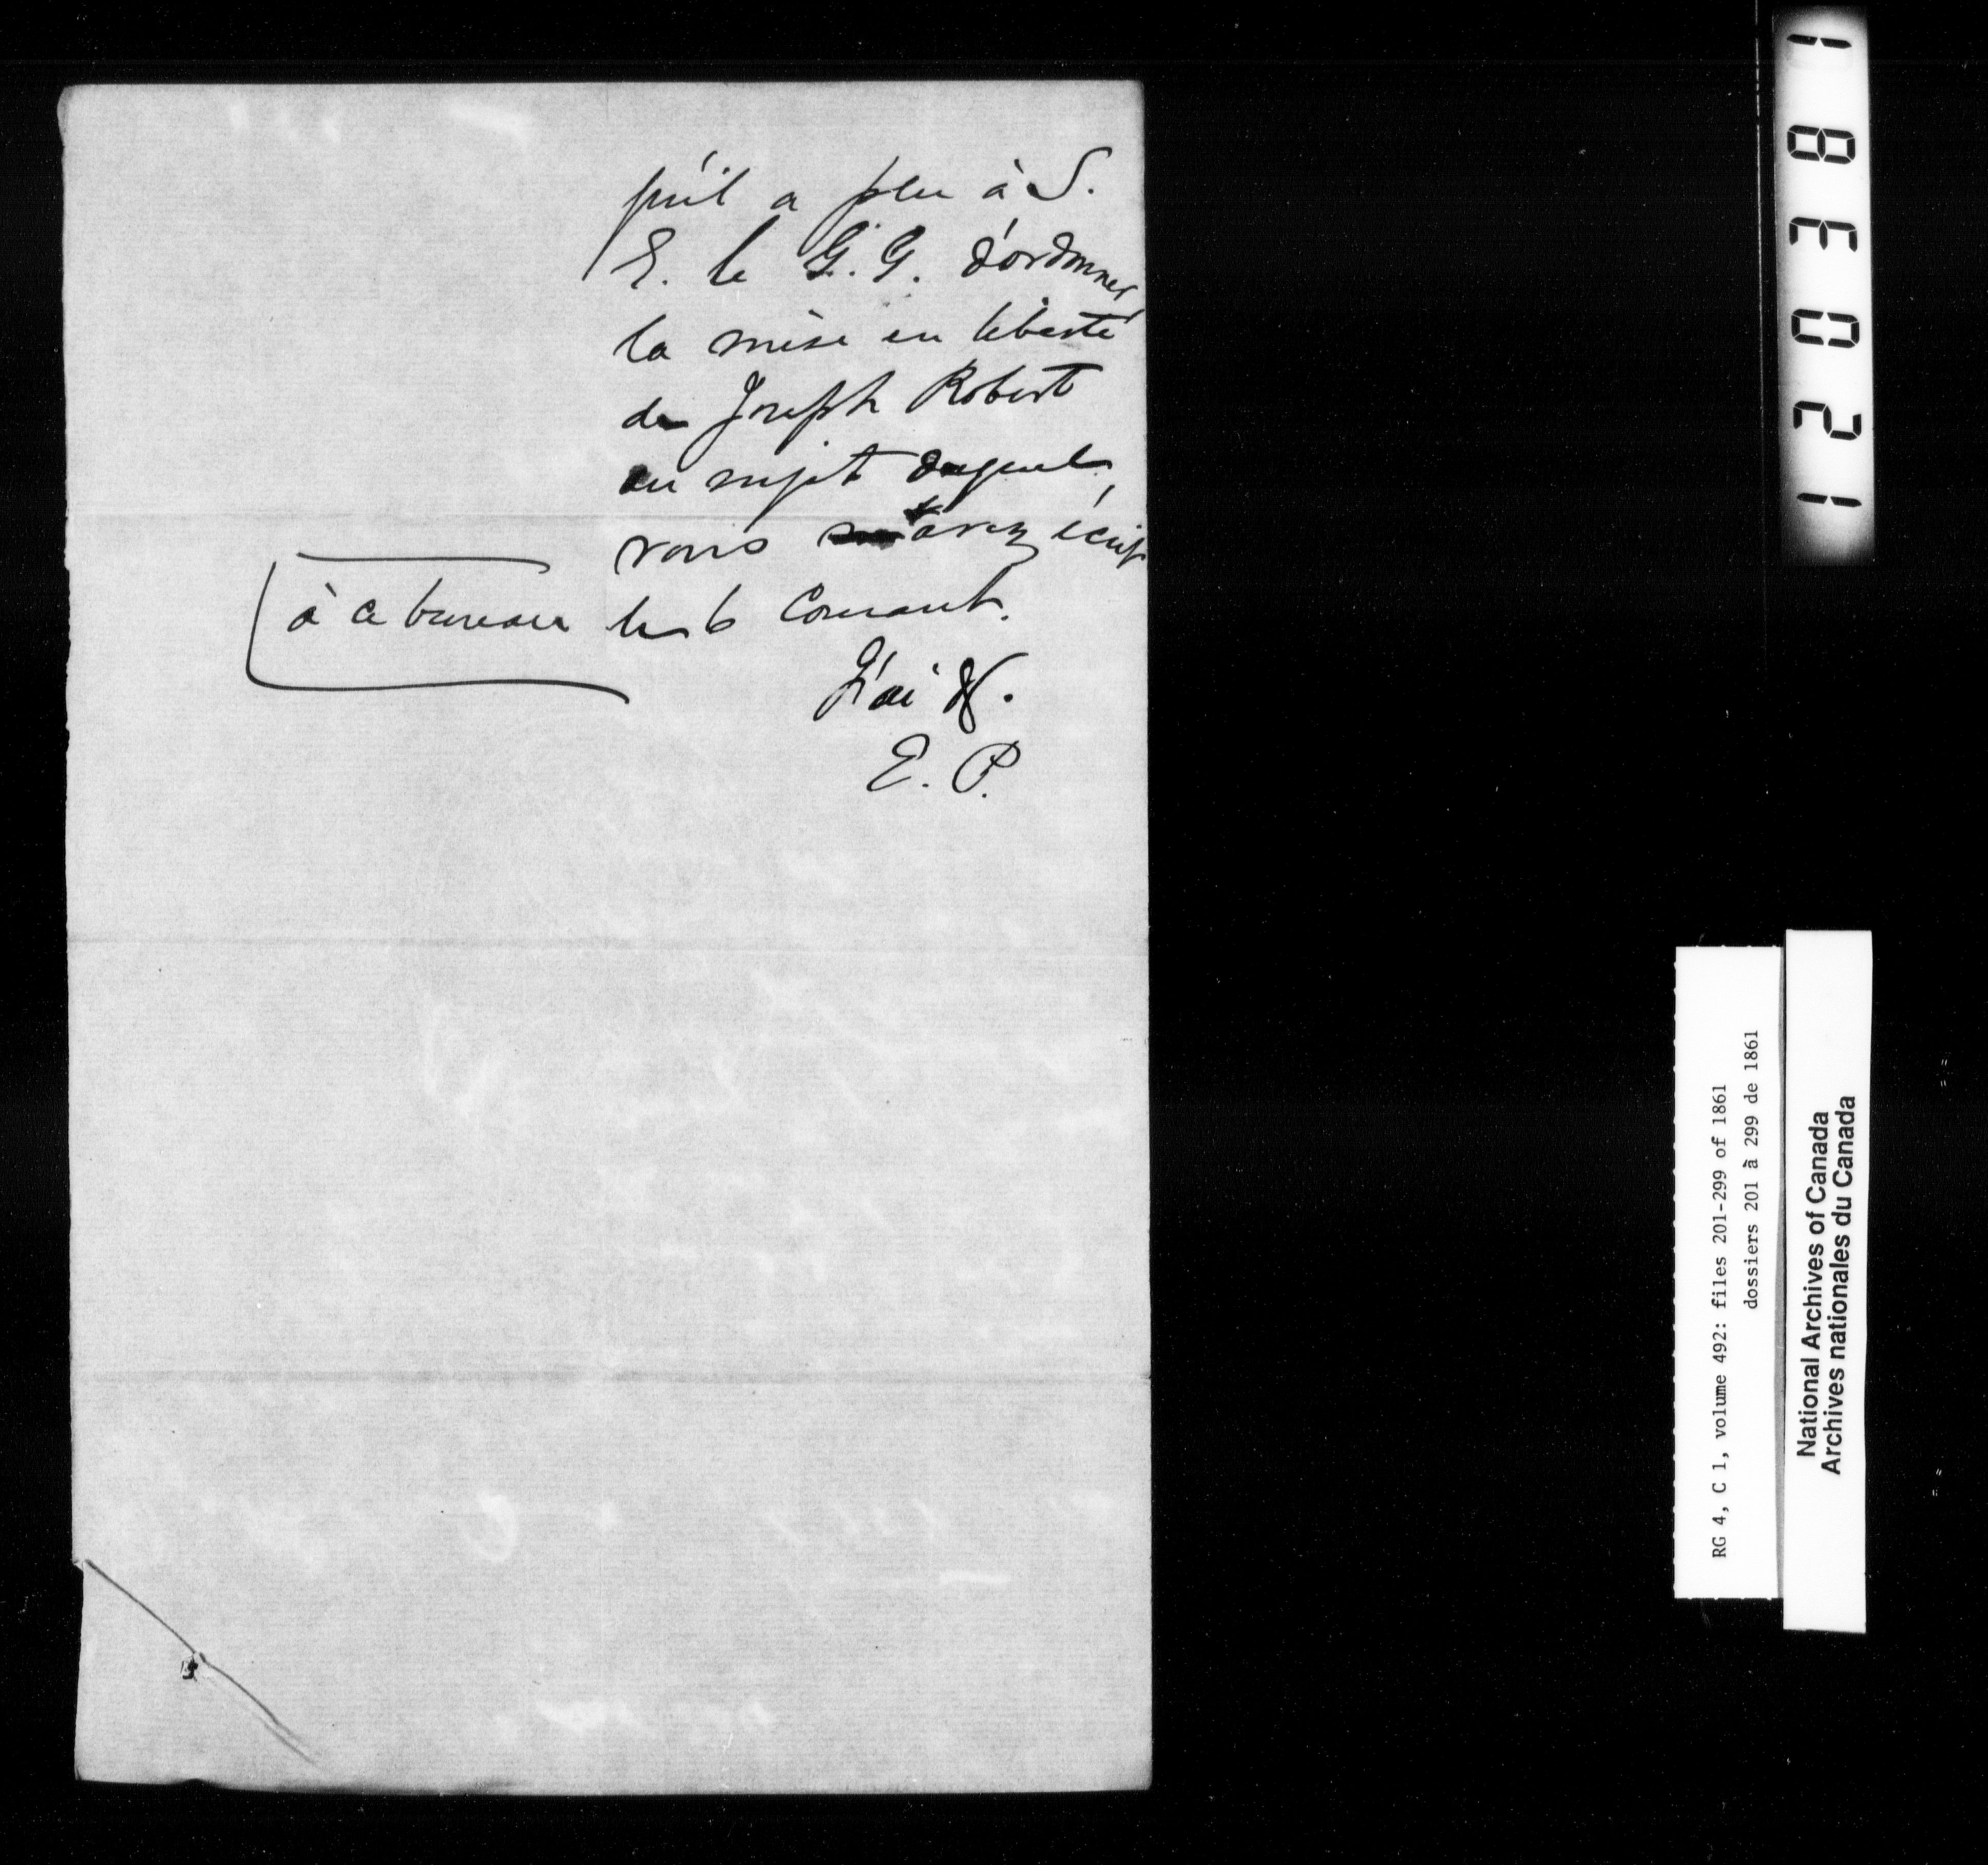 qu'il a plu à S.
E. le G. G. d'ordonner
la mise en liberté
de Joseph Robert
au sujet duquel
vous avez écrit
à ce bureau le 6 Courant.
J'ai &.
E. P.
1 8 3 0 2 1
RG 4, C 1, volume 492: files 201-299 of 1861
dossiers 201 à 299 de 1861
National Archives of Canada
Archives nationales du Canada